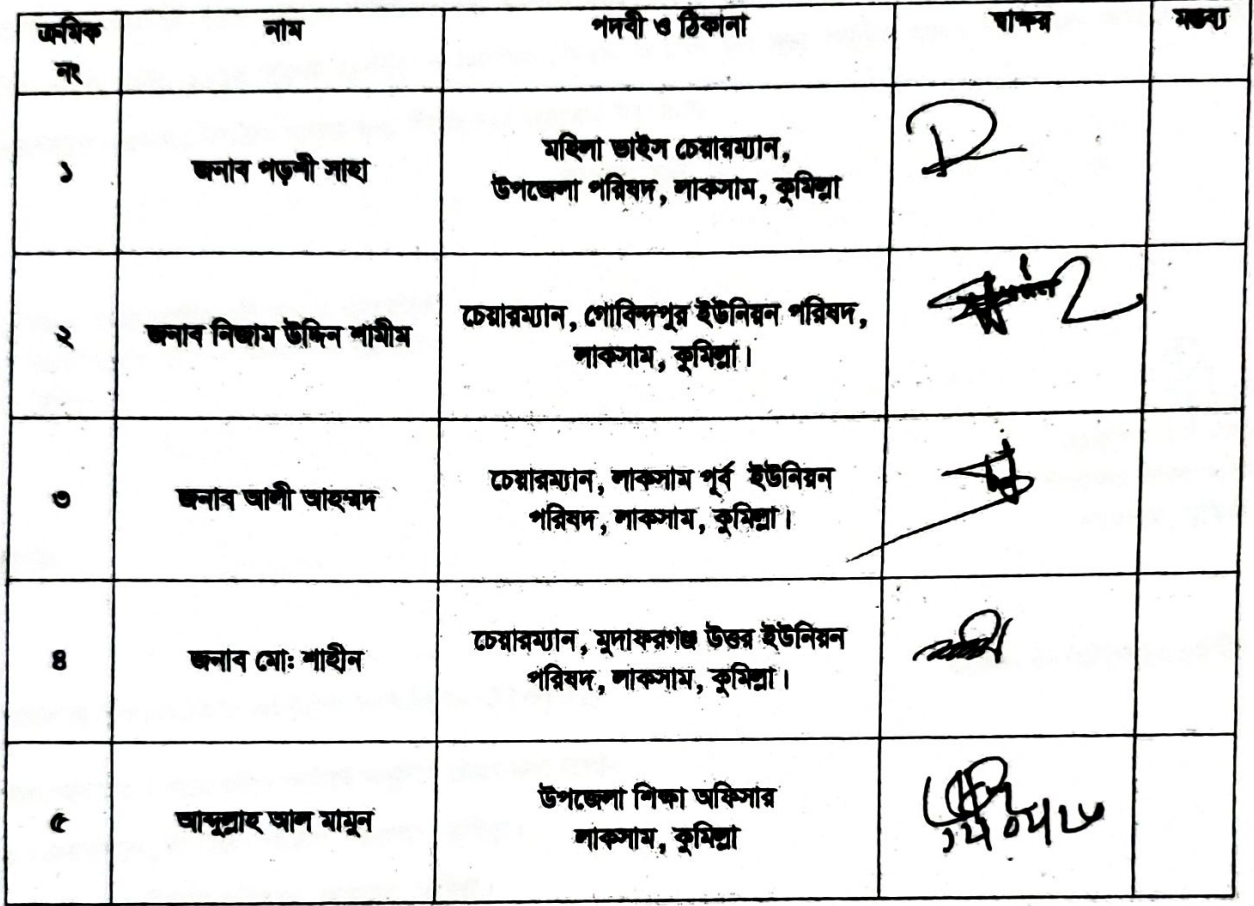 ক্রমিক নং
নাম
পদবী ও ঠিকানা
স্বাক্ষর
মন্তব্য
১
জনাব পড়শী সাহা
মহিলা ভাইস চেয়ারম্যান,
উপজেলা পরিষদ, লাকসাম, কুমিল্লা
২
জনাব নিজাম উদ্দিন শামীম
চেয়ারম্যান, গোবিন্দপুর ইউনিয়ন পরিষদ,
লাকসাম, কুমিল্লা।
৩
জনাব আলী আহম্মদ
চেয়ারম্যান, লাকসাম পূর্ব ইউনিয়ন
পরিষদ, লাকসাম, কুমিল্লা।
৪
জনাব মোঃ শাহীন
চেয়ারম্যান, মুদাফরগঞ্জ উত্তর ইউনিয়ন
পরিষদ, লাকসাম, কুমিল্লা।
৫
আব্দুল্লাহ আল মামুন
উপজেলা শিক্ষা অফিসার
লাকসাম, কুমিল্লা